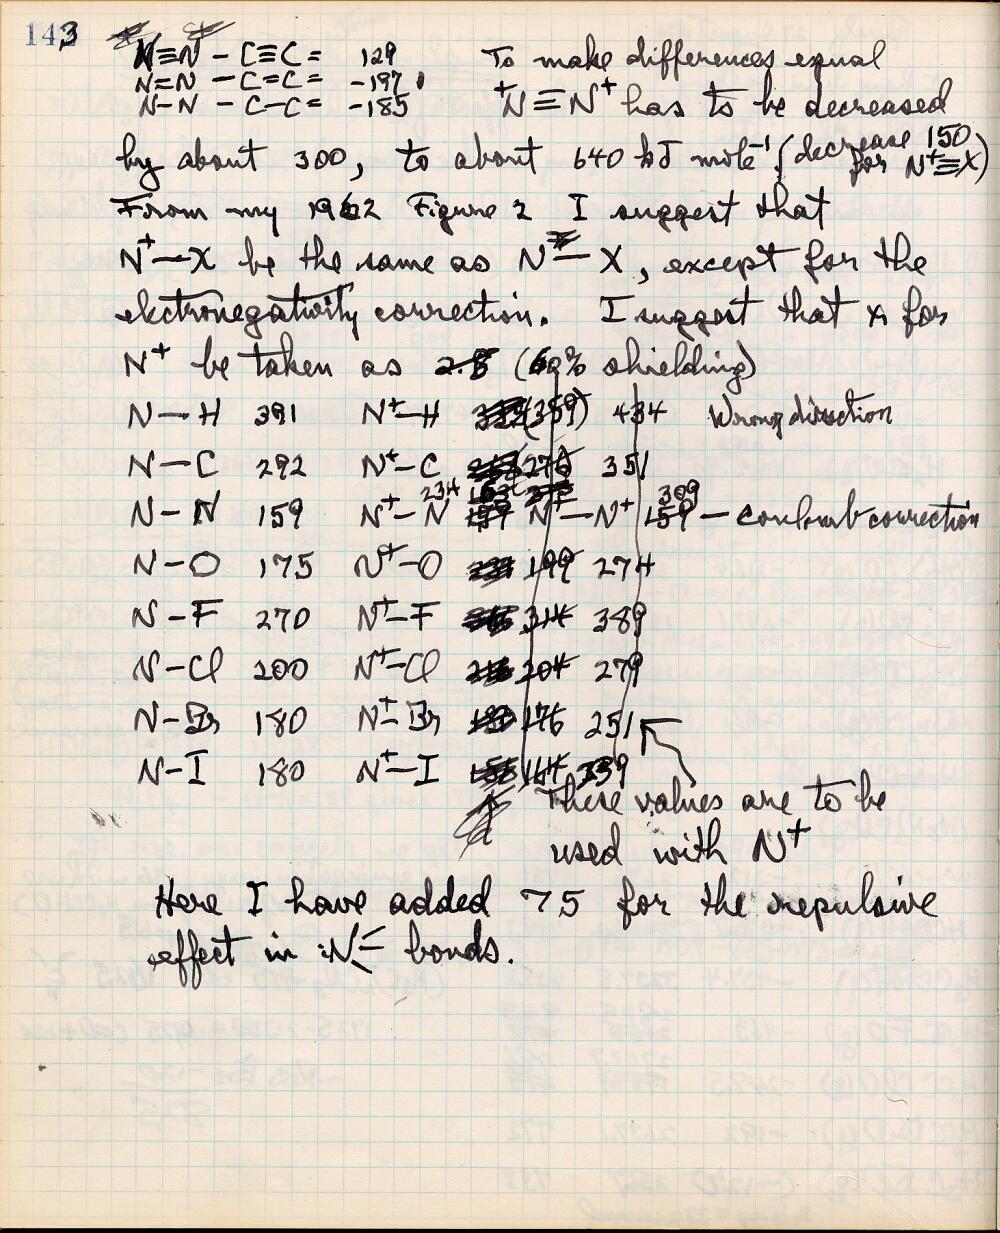 143
N≡N - C≡C = 129 To make differences equal
N=N - C=C = -197
N-N - C-C = -185 ⁺N≡N⁺ has to be decreased
by about 300, to about 640 kJ mole⁻¹ (decrease 150 for N⁺≡X)
From my 1962 Figure 2 I suggest that
N⁺—X be the same as N—X, except for the
electronegativity correction. I suggest that x for
N⁺ be taken as (60% shielding)
N—H 391 N⁺-H (359) 434 Wrong direction
N—C 292 N⁺-C 276 351
N-N 159 N⁺-N 234 N⁺—N⁺ 309 — coulomb correction
N-O 175 N⁺-O 199 274
N-F 270 N⁺-F 314 389
N-Cl 200 N⁺-Cl 204 279
N-Br 180 N⁺-Br 176 251
N-I 180 N⁺-I 164 339
These values are to be
used with N⁺
Here I have added 75 for the repulsive
effect in :N≡ bonds.